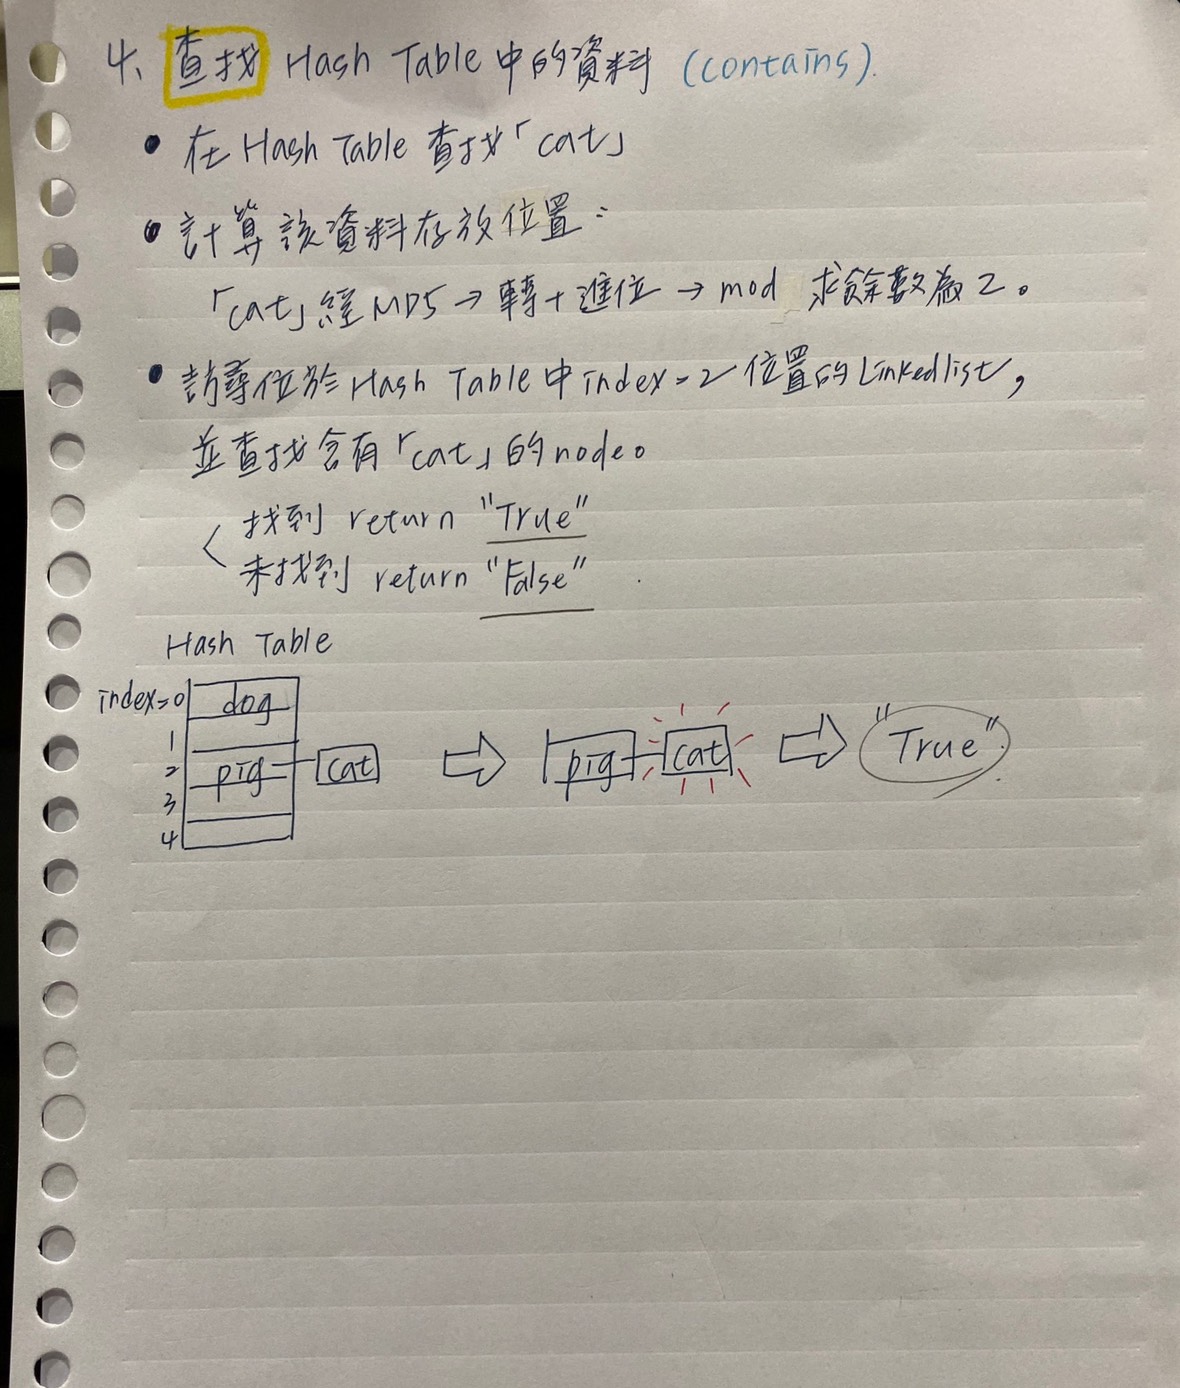 4、查找 Hash Table 中的資料 (contains).
• 在 Hash Table 查找「cat」
• 計算該資料存放位置：
「cat」經 MD5 → 轉十進位 → mod 求餘數為 2。
• 訪尋位於 Hash Table 中 index=2 位置的 Linkedlist，
並查找含有「cat」的 node。
找到 return "True"
未找到 return "False"
Hash Table
index=0 dog
1
2 pig cat ⇨ pig cat ⇨ "True"
3
4